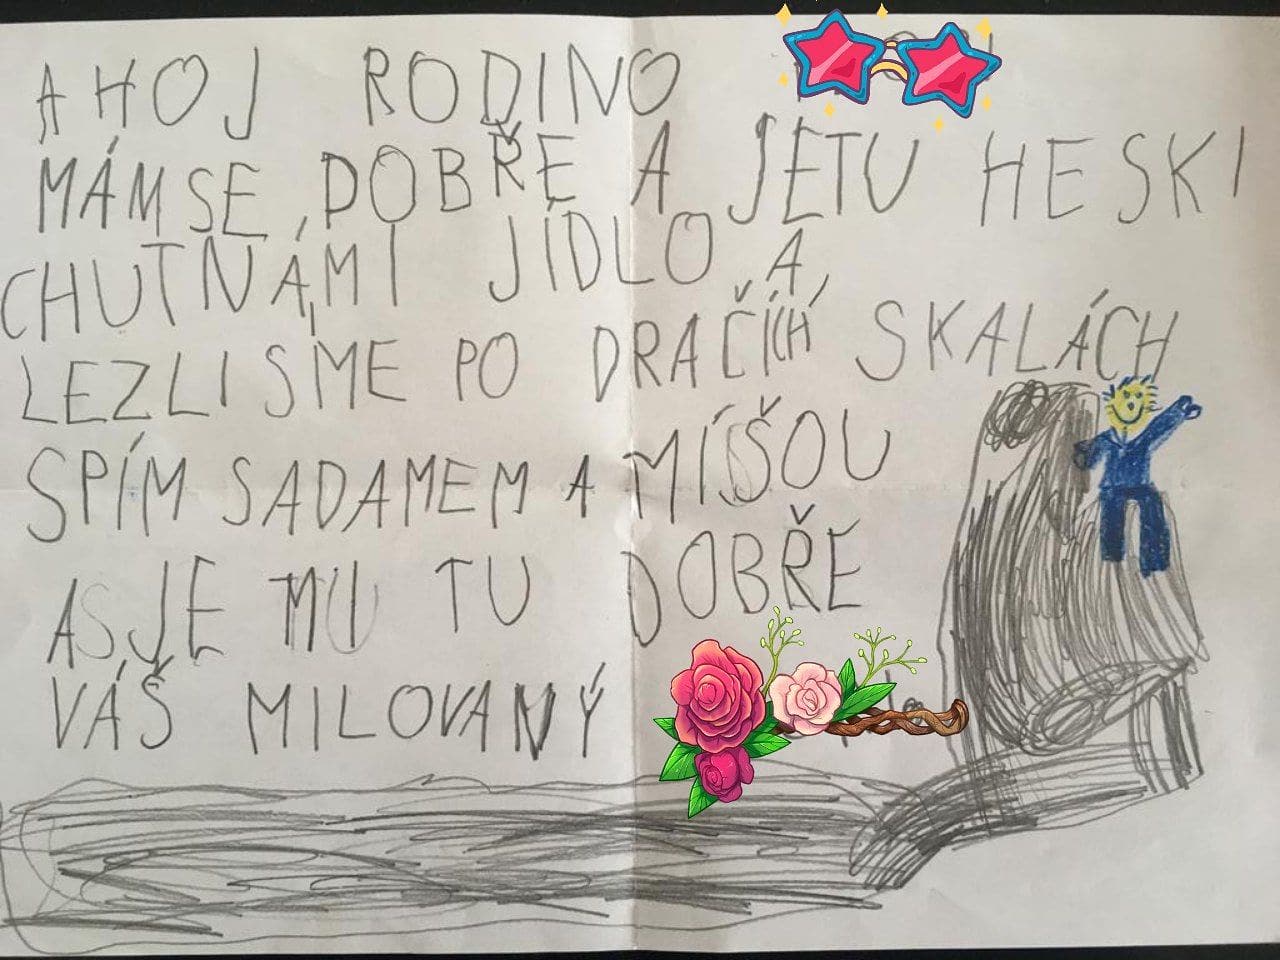 AHOJ RODINO
MÁMSE DOBŘE A JETU HESKI
CHUTNÁMI JÍDLO A,
LEZLISME PO DRAČÍCH SKALÁCH
SPÍM SADAMEM A MÍŠOU
ASJE MU TU DOBŘE
VÁŠ MILOVANÝ